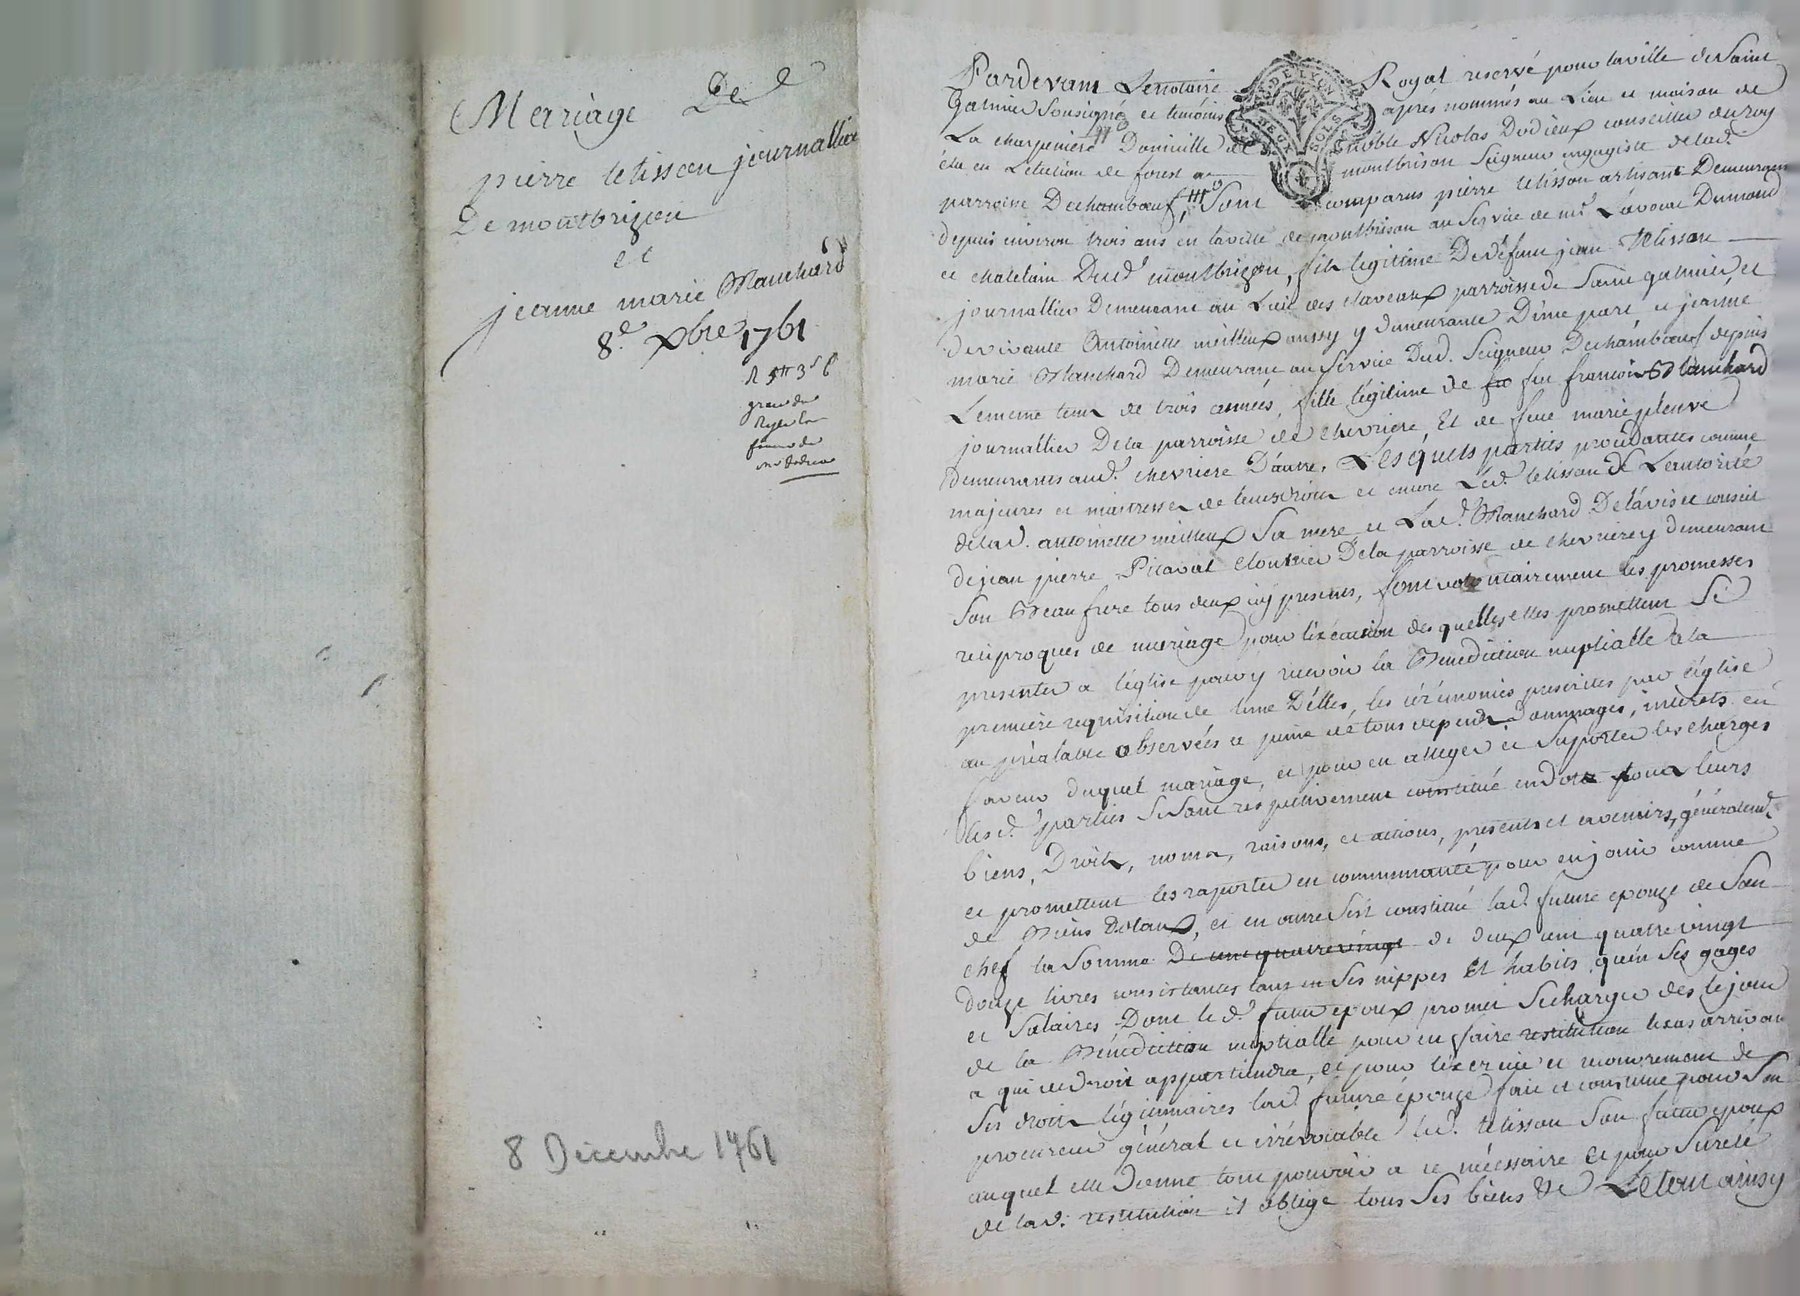 Merriage De
pierre telisson journallier
De montbrizon
et
jeanne marie Blanchard
8e. xbre 1761
8 Decembre 1761
Pardevant Lenotaire Royal reservé pour laville de Saint
Galmier Soussigné et temoins aprés nommés au Lieu et maison de
La charpinière Domicille de noble Nicolas Dodieux conseiller du roy
élu en L'élection de forest a montbrison Seigneur engagiste delad.
parroisse De chambœuf, Sont comparus pierre telisson artisant Demeurant
depuis environ trois ans en laville de montbrison au Service de mr. L'avocat Dumond
et chatelain Dud. montbrizon, fils legitime De defunt jean telisson
journallier Demeurant au Lieu des claveaux parroisse de Saint galmier et
de vivante Antoinette meilleux aussy y demeurante D'une part et jeanne
marie Blanchard Demeurant au Service Dud. Seigneur De chambœuf depuis
Lememe tems de trois années, fille légitime de feu francois Blanchard
journallier De la parroisse de chevriere, Et de feue marie pleuve
demeurants aud. chevriere D'autre, Lesquels parties procédantes comme
majeures et maitresses de leurs droits et encore Led. telisson de L'autorité
delad. antoinette meilleux Sa mere et Lad. Blanchard De l'avis et conseil
de jean pierre Picaval cloutrier De la parroisse de chevrieres y demeurant
Son Beaufrere tous deux icy presents, font volontairement les promesses
reciproques de mariage pour l'exécution des quelles elles promettent Se
presenter a l'église pour y recevoir la Benediction nuptialle a la
première requisition de l'une D'elles, les cérémonies prescrites par l'église
au préalable observées a peine de tous depends Dommages, interets en
faveur duquel mariage, et pour en alleger et Suporter les charges
lesd. parties Se Sont respectivement constitué en Dot tous leurs
biens, Droits, noms, raisons, et actions, présents et avenirs, généralemt.
et promettent les raporter en communauté pour en jouir comme
de Biens Dotaux, et en outre s'est constitué lad. future epouze de Son
chef la Somme De cent quatre vingt de deux cent quatre vingt
douze livres consistantes tant en Ses nippes Et habits qu'en Ses gages
et Salaires Dont led. futur epoux promet Se charger des le jour
de la Bénédiction nuptialle pour en faire restitution le cas arrivant
a qui de droit appartiendra, et pour l'exercice et recouvrement de
Ses droits légitimaires lad. future épouze fait et constitue pour Son
procureur général et irrévocable led. telisson Son futur epoux
auquel elle donne tout pouvoir a ce nécessaire et pour Sureté
de lad. restitution il oblige tous Ses biens &c Letout ainsy